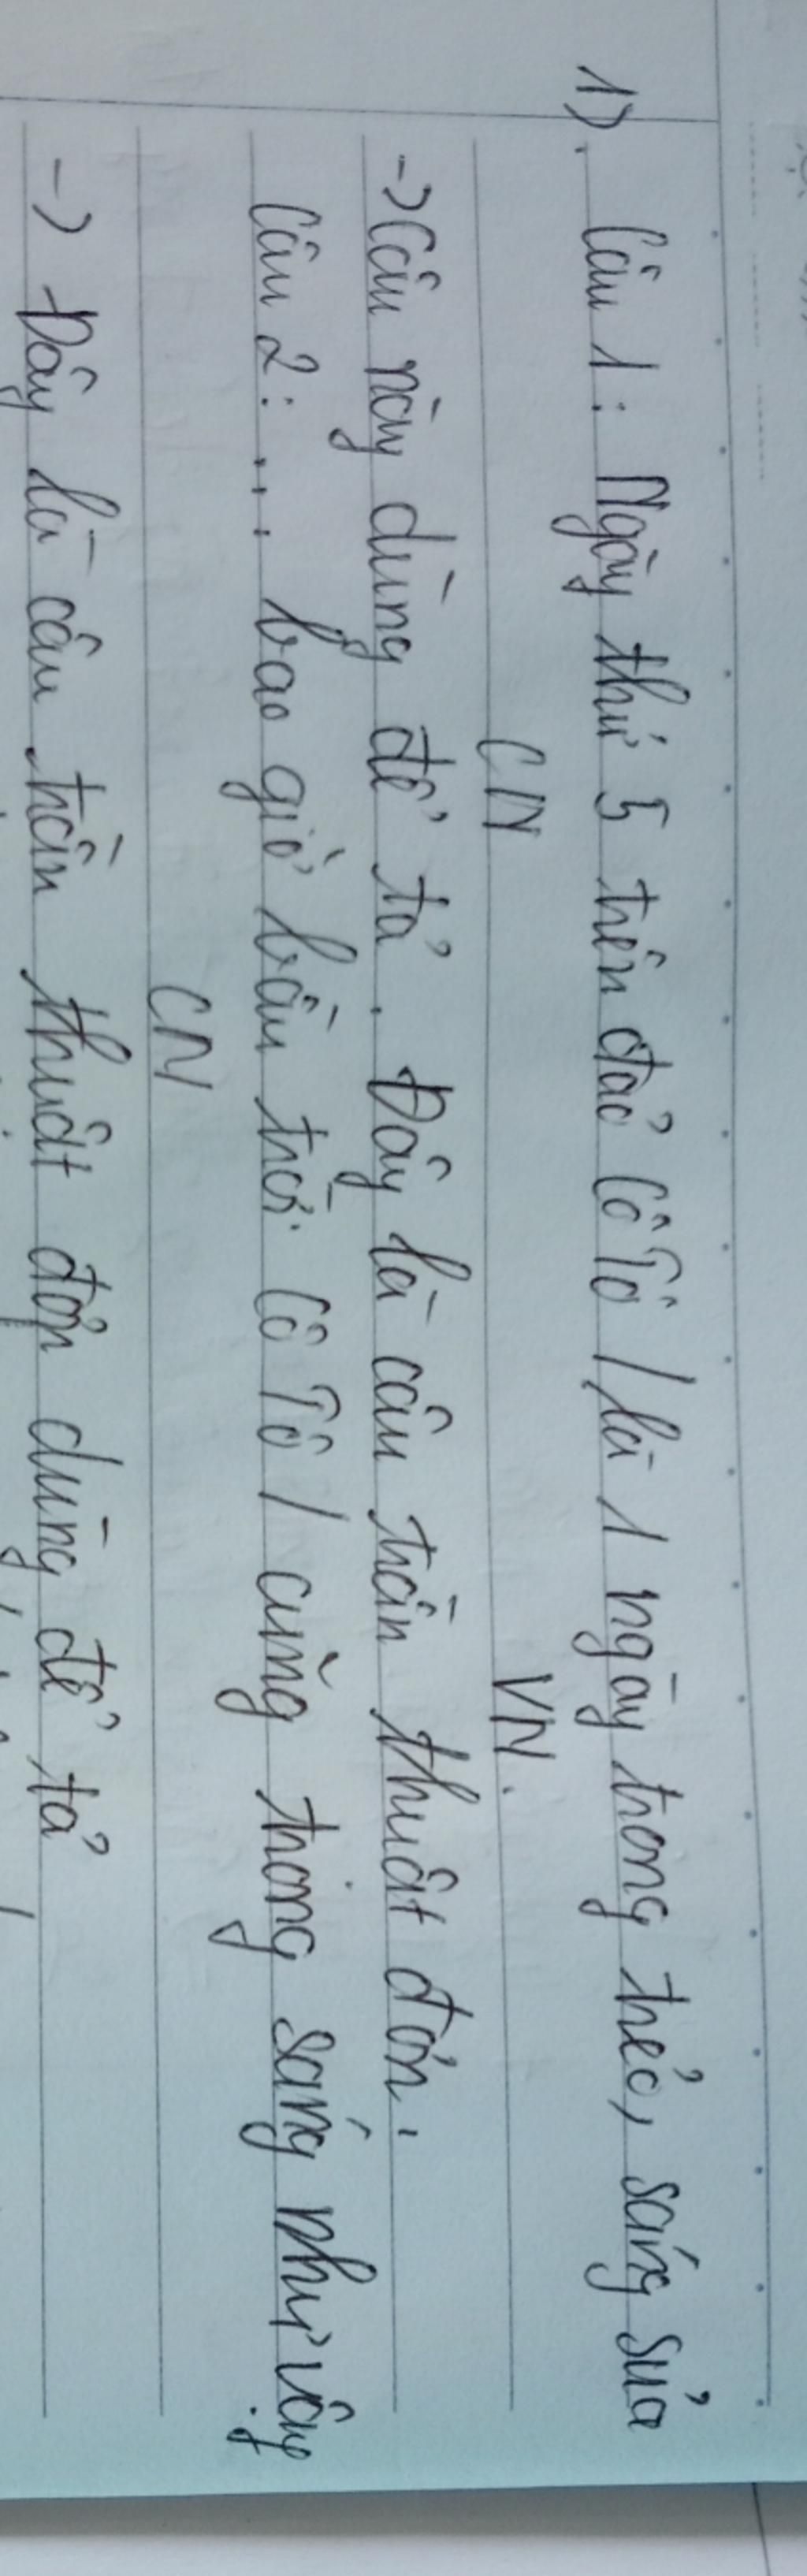 1). Câu 1: Ngày thứ 5 trên đảo Cô Tô / là 1 ngày trong trẻo, sáng sủa
CN VN.
-> Câu này dùng để tả. Đây là câu trần thuật đơn.
Câu 2: ... bao giờ bầu trời Cô Tô / cũng trong sáng như vậy
CN
-> Đây là câu trần thuật đơn dùng để tả